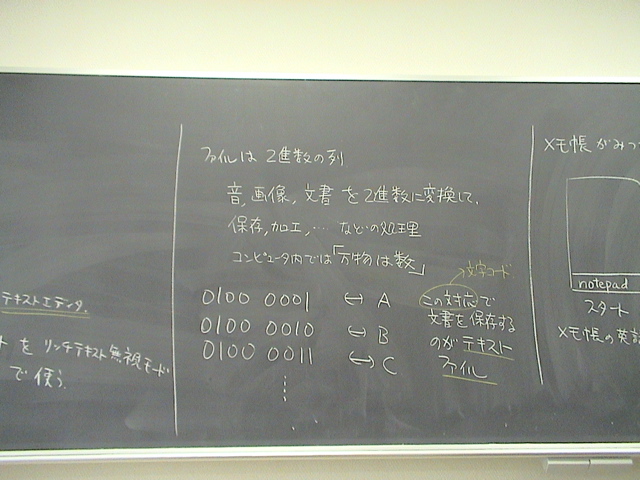 テキストエディタ.
トを リッチテキスト無視モード
で使う.
ファイルは 2進数の列
音, 画像, 文書 を2進数に変換して,
保存, 加工, … などの処理
コンピュータ内では「万物は数」
0100 0001 ↔ A
0100 0010 ↔ B
0100 0011 ↔ C
⋮
文字コード
この対応で
文書を保存する
のが テキスト
ファイル
メモ帳がみつ
notepad
スタート
メモ帳の英語